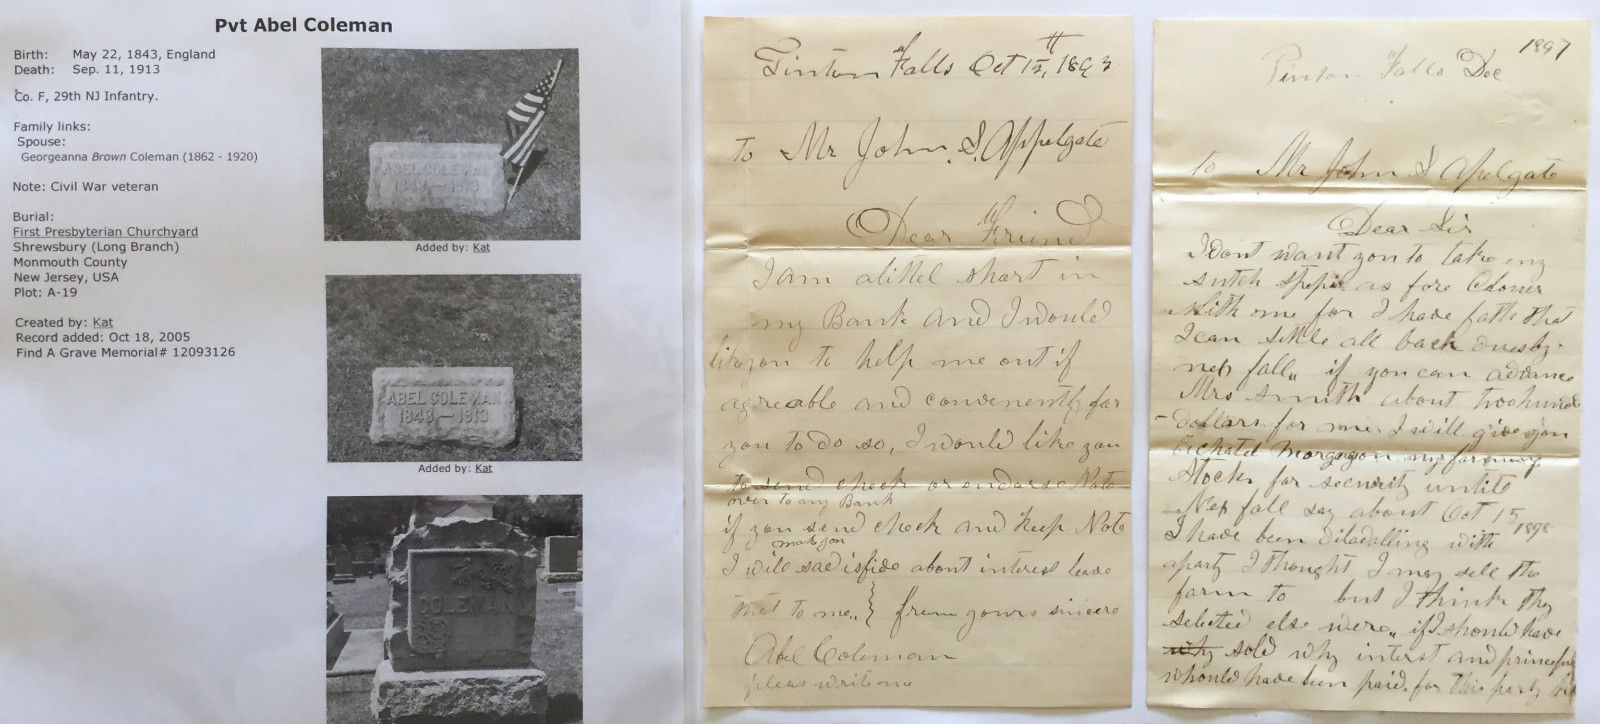 Pvt Abel Coleman
Birth: May 22, 1843, England
Death: Sep. 11, 1913
Co. F, 29th NJ Infantry.
Family links:
Spouse:
Georgeanna Brown Coleman (1862 - 1920)
Note: Civil War veteran
Burial:
First Presbyterian Churchyard
Shrewsbury (Long Branch)
Monmouth County
New Jersey, USA
Plot: A-19
Created by: Kat
Record added: Oct 18, 2005
Find A Grave Memorial# 12093126
ABEL COLEMAN
1843 — 1913
Added by: Kat
ABEL COLEMAN
1843 — 1913
Added by: Kat
COLEMAN
Tinton Falls Oct 15, 1893
to Mr John S. Appelgate
Dear Friend
I am alittel short in
my Bank and I would
like you to help me out if
agreeable and conveniently for
you to do so, I would like you
to send check or endorse Note
over to any Bank
if you send check and keep Note
mak you
I will sadisfide about interest leave
that to me,, } from yours sincere
Abel Coleman
pleas write me
1897
Tinton Falls Dec
to Mr John S Apelgate
Dear Sir
I dont want you to take eny
sutch stepes as fore Closuer
With me for I have fath that
I can settle all back
nex fall,, if you can advance
Mrs Smith about two hund
- dollars for me. I will give you
a chatel Morgage on my farming
Stock for security untile
Nex fall say about Oct 15 1898
I have been diladalling with
aparty I thought I may sell the
farm to but I think they
selected else were,, if I should have
why sold why interst and
whould have been paid, for this party